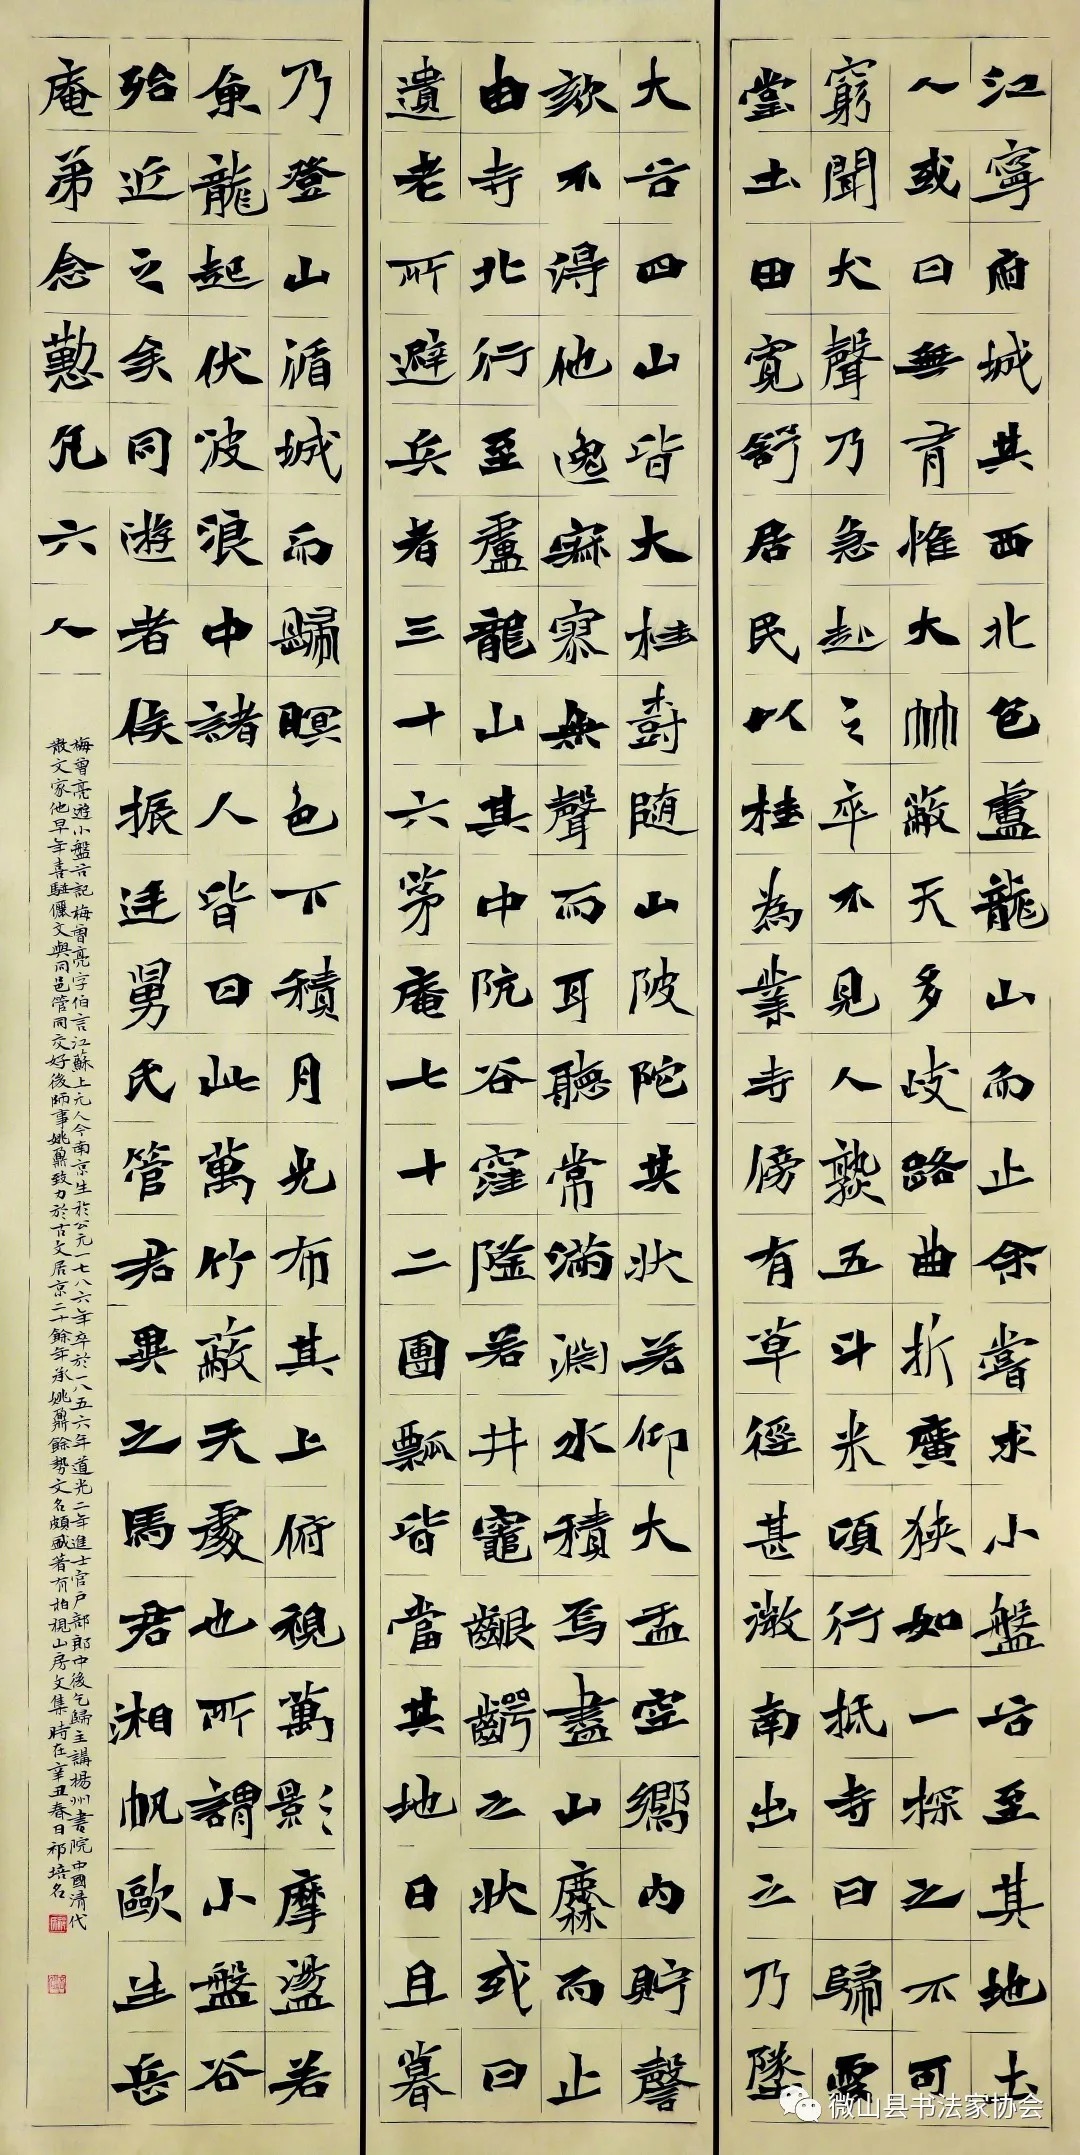 江寧府城其西北包盧龍山而止余嘗求小盤谷至其地土
人或曰無有惟大竹蔽天多歧路曲折廣狹如一探之不可
窮聞犬聲乃急赴之卒不見人熟五斗米頃行抵寺曰歸雲
堂土田寬舒居民以桂為業寺傍有草徑甚微南出之乃墜
大谷四山皆大桂樹随山陂陀其狀若仰大盂空響內貯謦
欬不得他逸寂寥無聲而耳聽常滿淵水積焉盡山麓而止
由寺北行至盧龍山其中阬谷窪隆若井竈齦齶之狀或曰
遺老所避兵者三十六茅庵七十二團瓢皆當其地日且暮
乃登山循城而歸瞑色下積月光布其上俯視萬影摩盪若
魚龍起伏波浪中諸人皆曰此萬竹蔽天處也所謂小盤谷
殆近之矣同遊者侯振廷舅氏管君異之馬君湘帆歐生岳
庵弟念懃凡六人
梅曾亮遊小盤谷記梅曾亮字伯言江蘇上元人今南京生於公元一七八六年卒於一八五六年道光二年進士官戶部郎中後乞歸主講楊州書院中國清代
散文家他早年喜駢儷文與同邑管同交好後師事姚鼐致力於古文居京二十餘年承姚鼐餘勢文名頗盛著有柏梘山房文集時在辛丑春日祁培名
微山县书法家协会